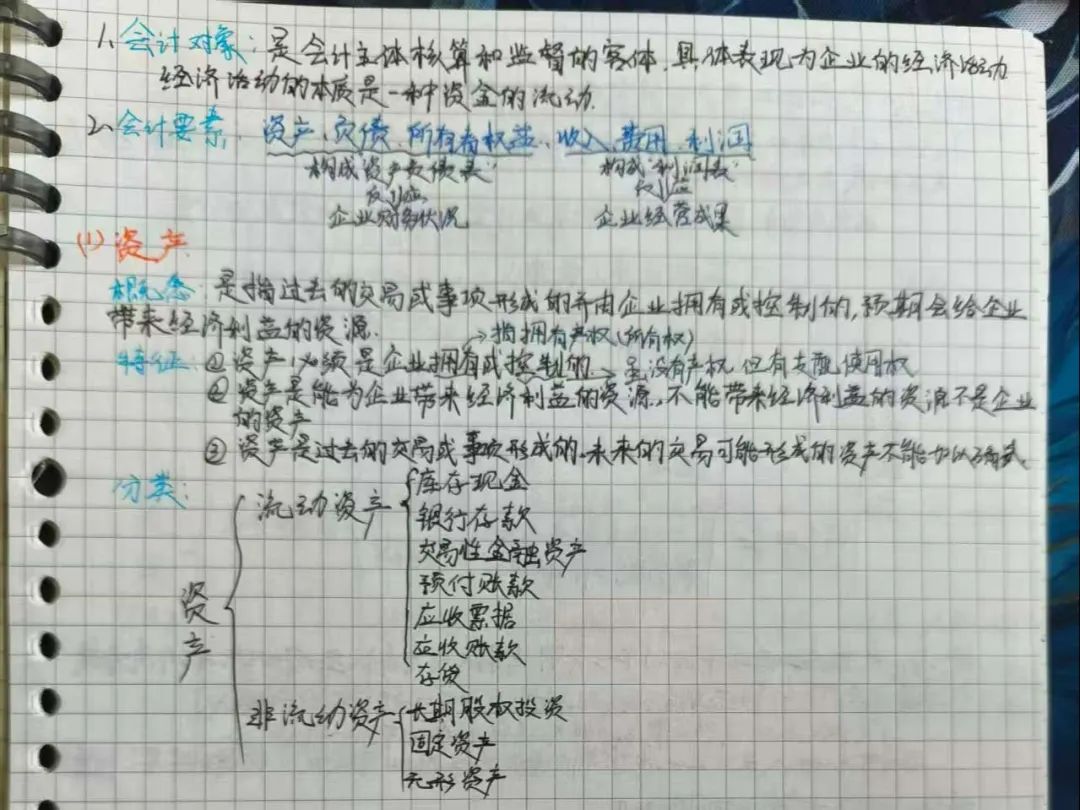 1、会计对象:是会计主体核算和监督的客体,具体表现为企业的经济活动
经济活动的本质是一种资金的流动.
2、会计要素:资产、负债、所有者权益、收入、费用、利润
构成"资产负债表" 构成"利润表"
反应 反应
企业财务状况 企业经营成果
(1)资产
概念:是指过去的交易或事项形成的并由企业拥有或控制的,预期会给企业
带来经济利益的资源. →指拥有产权(所有权)
特征:①资产必须是企业拥有或控制的.→ 没有产权,但有支配使用权
②资产是能为企业带来经济利益的资源,不能带来经济利益的资源不是企业
的资产
③资产是过去的交易或事项形成的.未来的交易可能形成的资产不能加以确认
分类:
流动资产
库存现金
银行存款
交易性金融资产
预付账款
应收票据
应收账款
存货
资产
非流动资产
长期股权投资
固定资产
无形资产